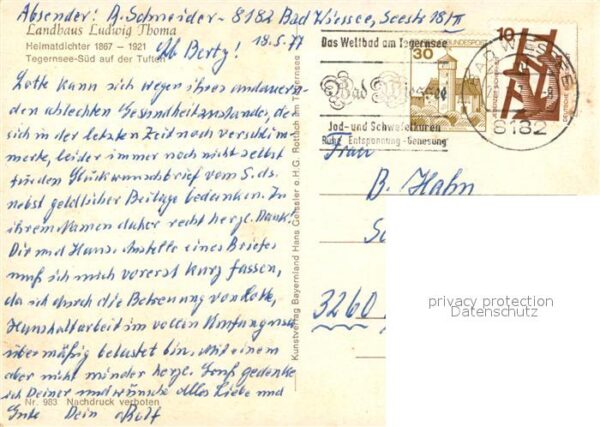 Absender: A. Schneider - 8182 Bad Wiessee, Seestr. 18/II
Landhaus Ludwig Thoma
Heimatdichter 1867 – 1921
Tegernsee-Süd auf der Tuften
18.5.77
Lb. Berty!
Lotte kann sich wegen ihres andauern-
den schlechten Gesundheitszustandes, der
sich in der letzten Zeit noch verschlim-
merte, leider immer noch nicht selbst
für den Glückwunschbrief vom 5. ds.
nebst geldlicher Beilage bedanken. In
ihrem Namen daher recht herzl. Dank!
Dir und Hans. Anstelle eines Briefes
muß ich mich vorerst kurz fassen,
da ich durch die Betreuung von Lotte,
Haushaltarbeit im vollen Umfang
übermäßig belastet bin. Mit einem
aber nicht minder herzl. Gruß gedenke
ich Deiner und wünsche alles Liebe und
Gute Dein Rolf
Nr. 983 Nachdruck verboten
Kunstverlag Bayernland Hans Geissler o.H.G. Rottach am Tegernsee
Das Weltbad am Tegernsee
Bad Wiessee
Jod- und Schwefelkuren
Ruhe Entspannung Genesung
30
BUNDESPOST
10
BAD WIESSEE
8182
Frau
B. Hahn
3260
privacy protection
Datenschutz